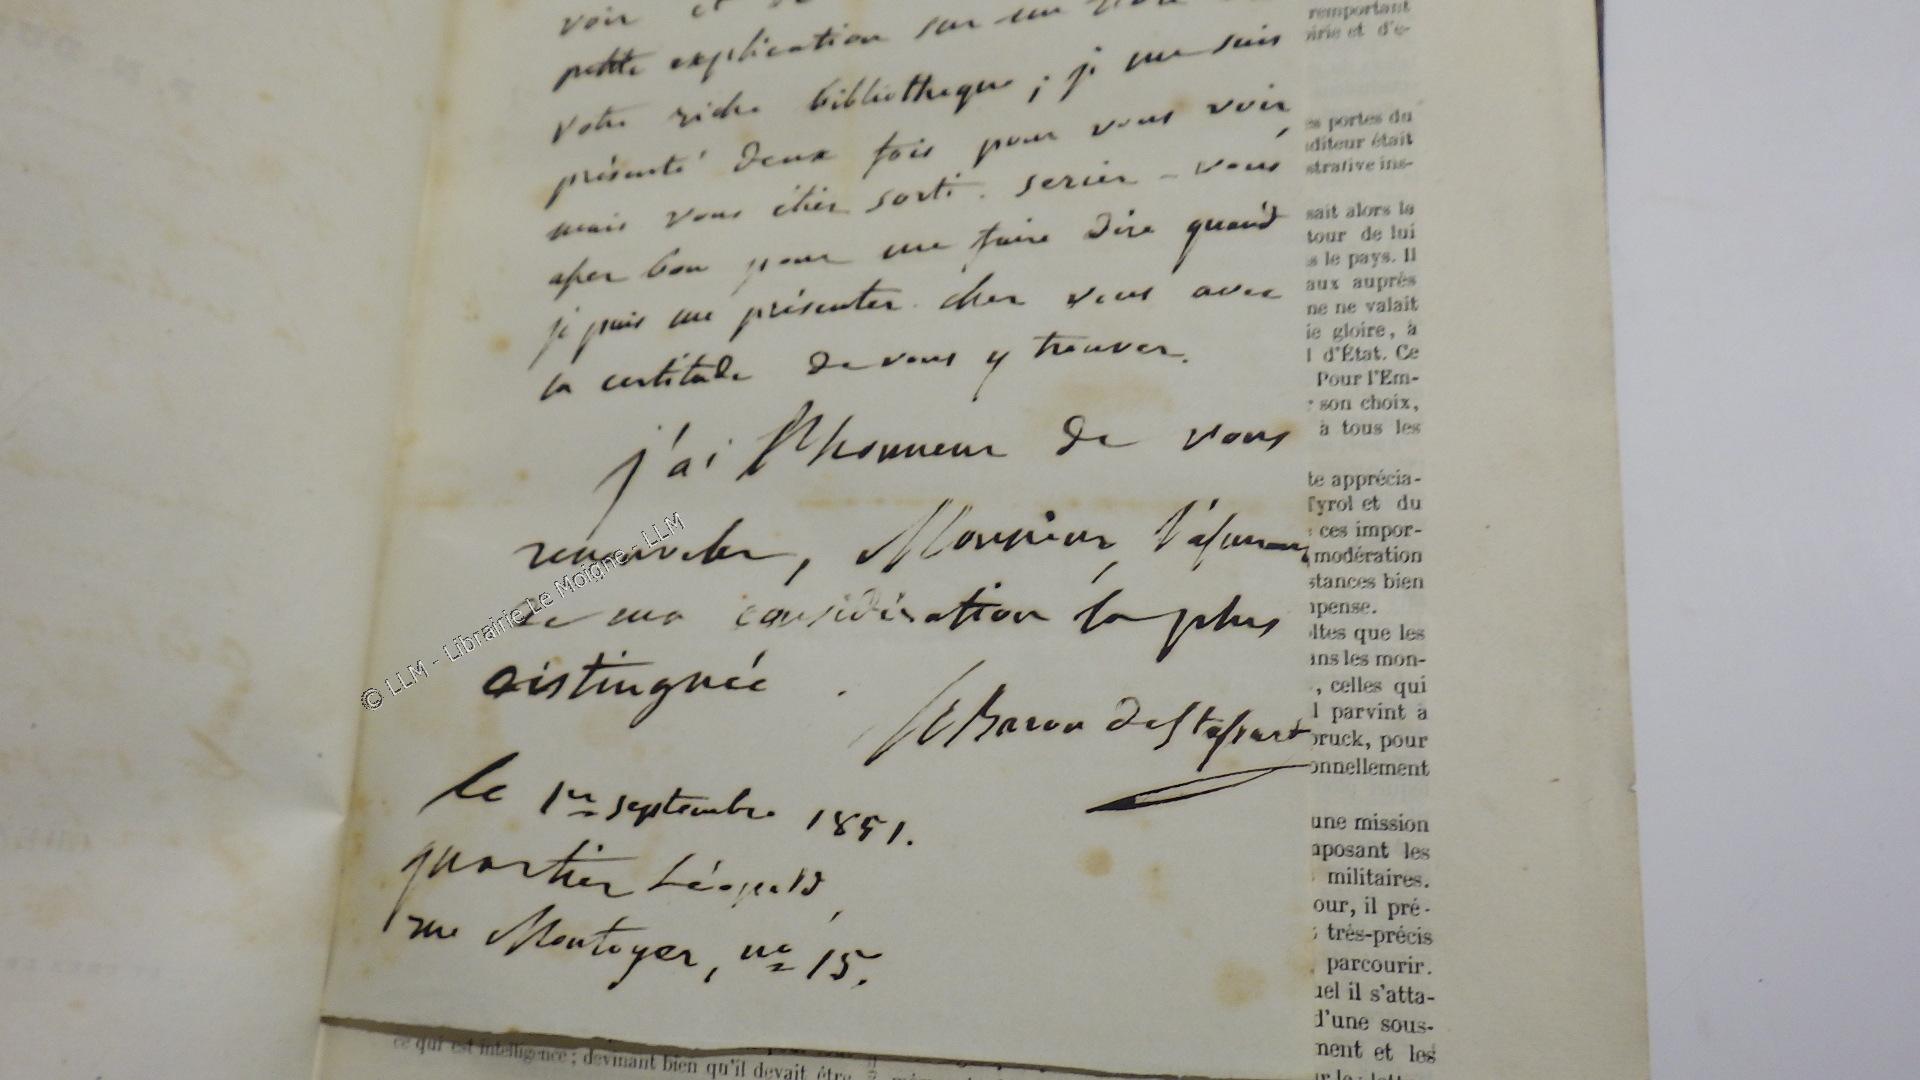 voir et de
petite explication sur un
votre riche bibliothèque ; je me suis
présenté deux fois pour vous voir,
mais vous étiez sorti. seriez-vous
assez bon pour me faire dire quand
je puis me présenter chez vous avec
la certitude de vous y trouver.
j'ai l'honneur de vous
renouveler, Monsieur, l'assurance
de ma considération la plus
distinguée.
le Baron de Stassart
le 1er septembre 1851.
quartier Léopold,
rue Montoyer, no 15.
© LLM - Librairie Le Moigne - LLM
remportant
irie et d'e-
es portes du
diteur était
strative ins-
sait alors la
tour de lui
s le pays. Il
aux auprès
ne ne valait
ie gloire, à
l d'État. Ce
Pour l'Em-
r son choix,
à tous les
te apprécia-
Tyrol et du
ces impor-
modération
stances bien
mpense.
oltes que les
ans les mon-
, celles qui
l parvint à
pruck, pour
onnellement
une mission
mposant les
militaires.
our, il pré-
très-précis
parcourir.
uel il s'atta-
d'une sous-
ment et les
ce qui est intelligence ; devinant bien qu'il devait être